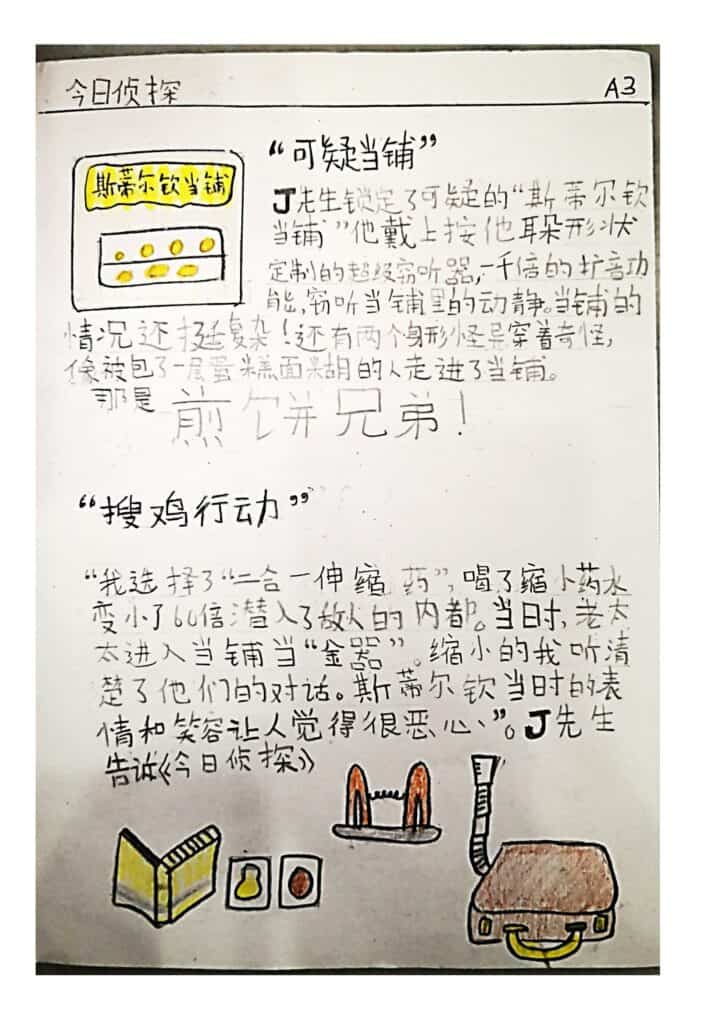 今日侦探
A3
斯蒂尔钦当铺
“可疑当铺”
J先生锁定了可疑的“斯蒂尔钦
当铺”他戴上按他耳朵形状
定制的超级窃听器,一千倍的扩音功
能,窃听当铺里的动静。当铺的
情况还挺复杂!还有两个身形怪异穿着奇怪,
像被包了一层蛋糕面糊的人走进了当铺。
那是 煎饼兄弟!
“搜鸡行动”
“我选择了“二合一伸缩药”,喝了缩小药水
变小了60倍潜入了敌人的内部。当日时,老太
太进入当铺当“金器”。缩小的我听清
楚了他们的对话。斯蒂尔钦当时的表
情和笑容让人觉得很恶心、”。J先生
告诉《今日侦探》